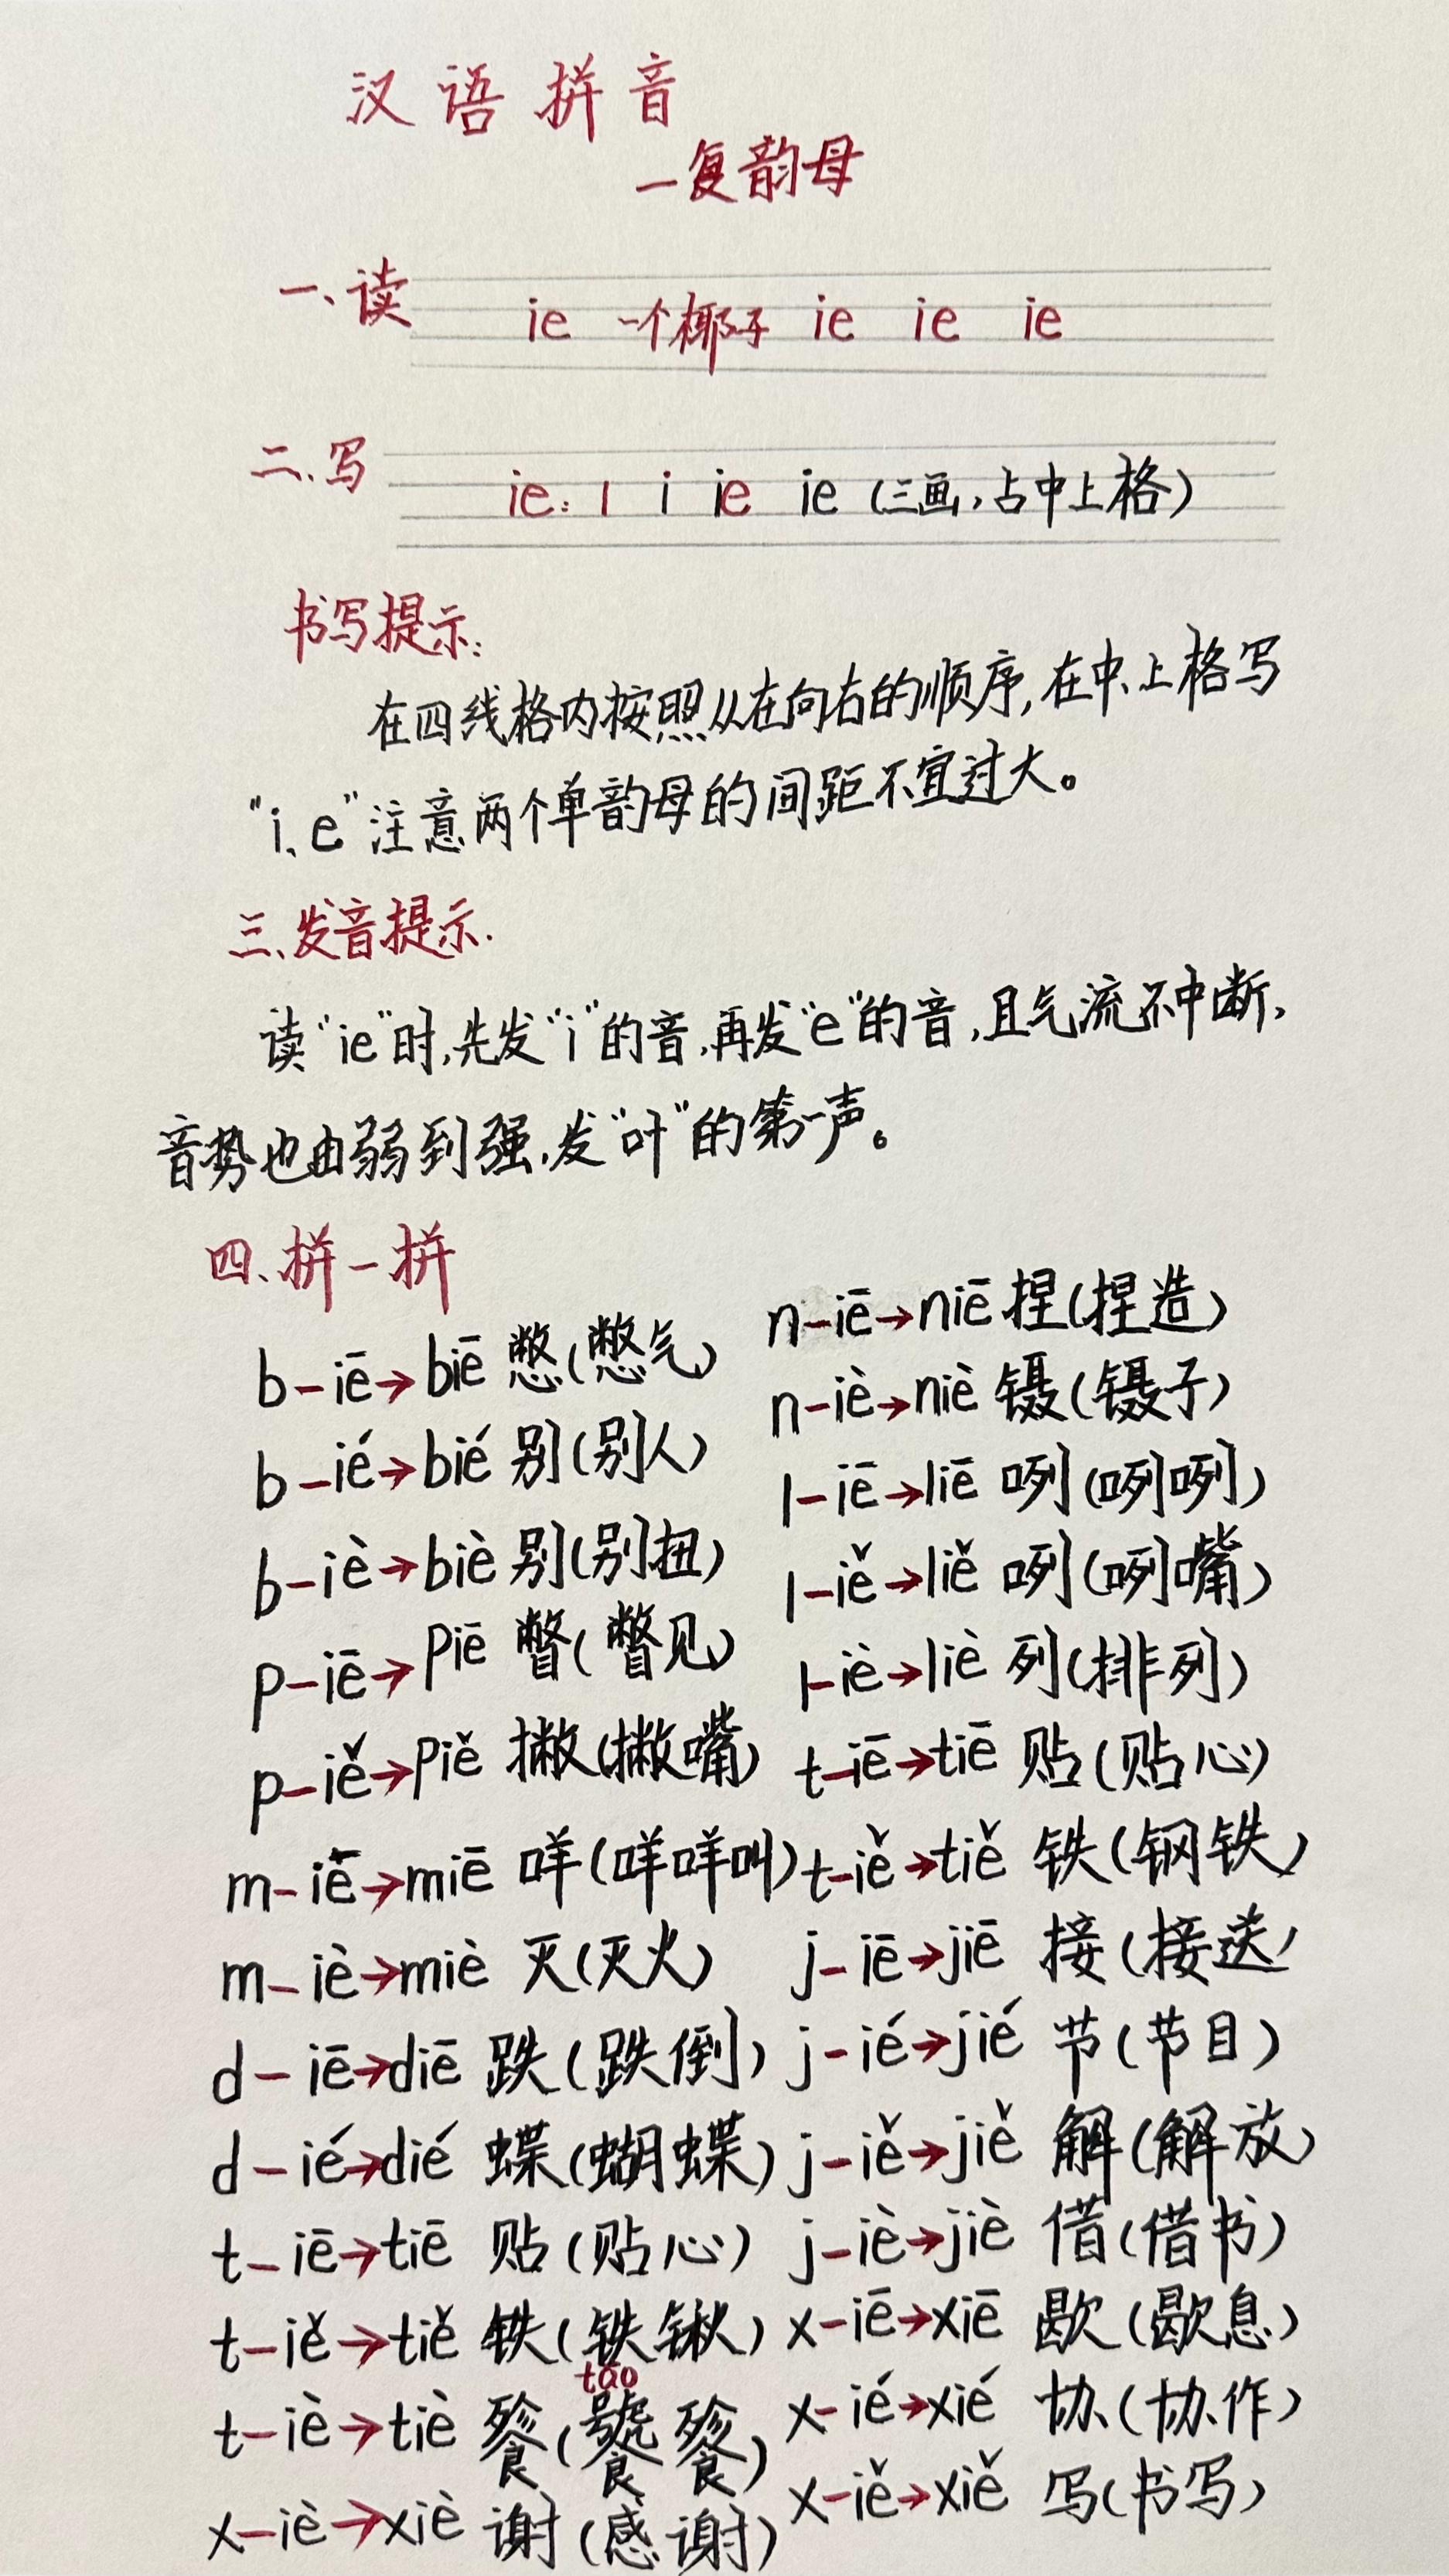 汉语拼音
一复韵母
一、读 ie 一个椰子 ie ie ie
二、写 ie: l i ie ie (三画,占中上格)
书写提示:
在四线格内按照从在向右的顺序,在中、上格写
“i、e”注意两个单韵母的间距不宜过大。
三、发音提示.
读“ie”时,先发“i”的音,再发“e”的音,且气流不中断,
音势也由弱到强,发“叶”的第一声。
四、拼一拼
b-iē→biē 憋(憋气)
b-ié→bié 别(别人)
b-iè→biè 别(别扭)
p-iē→piē 瞥(瞥见)
p-iě→piě 撇(撇嘴)
m-iē→miē 咩(咩咩叫)
m-iè→miè 灭(灭火)
d-iē→diē 跌(跌倒)
d-ié→dié 蝶(蝴蝶)
t-iē→tiē 贴(贴心)
t-iě→tiě 铁(铁锹)
tāo
t-iè→tiè 餮(饕餮)
x-iè→xiè 谢(感谢)
n-iē→niē 捏(捏造)
n-iè→niè 镊(镊子)
l-iē→liē 咧(咧咧)
l-iě→liě 咧(咧嘴)
l-iè→liè 列(排列)
t-iē→tiē 贴(贴心)
t-iě→tiě 铁(钢铁)
j-iē→jiē 接(接送)
j-ié→jié 节(节目)
j-iě→jiě 解(解放)
j-iè→jiè 借(借书)
x-iē→xiē 歇(歇息)
x-ié→xié 协(协作)
x-iě→xiě 写(书写)